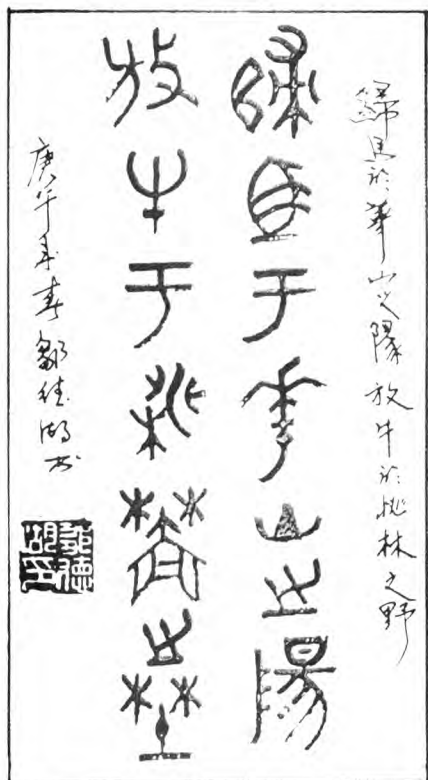 歸馬於華山之陽放牛於桃林之野
歸馬于華山之陽
放牛于桃之埜
庚午年春鄒德湖书
鄒德湖印